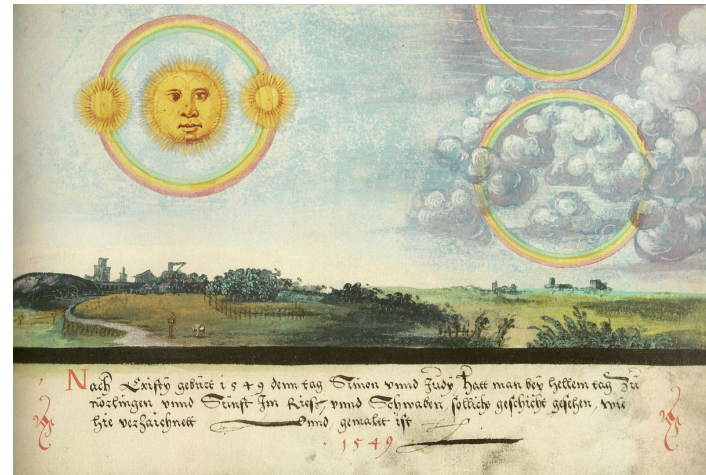 Nach Cristÿ gebürt 1549 denn tag Simon vnnd Judÿ hatt man beÿ hellem tag zu
nörlingen vnnd Sünst Im Riess, vnnd Schwaben, solliche geschicht gesehen, wie
hie verzaichnett vnnd, gemaltt ist
· 1549